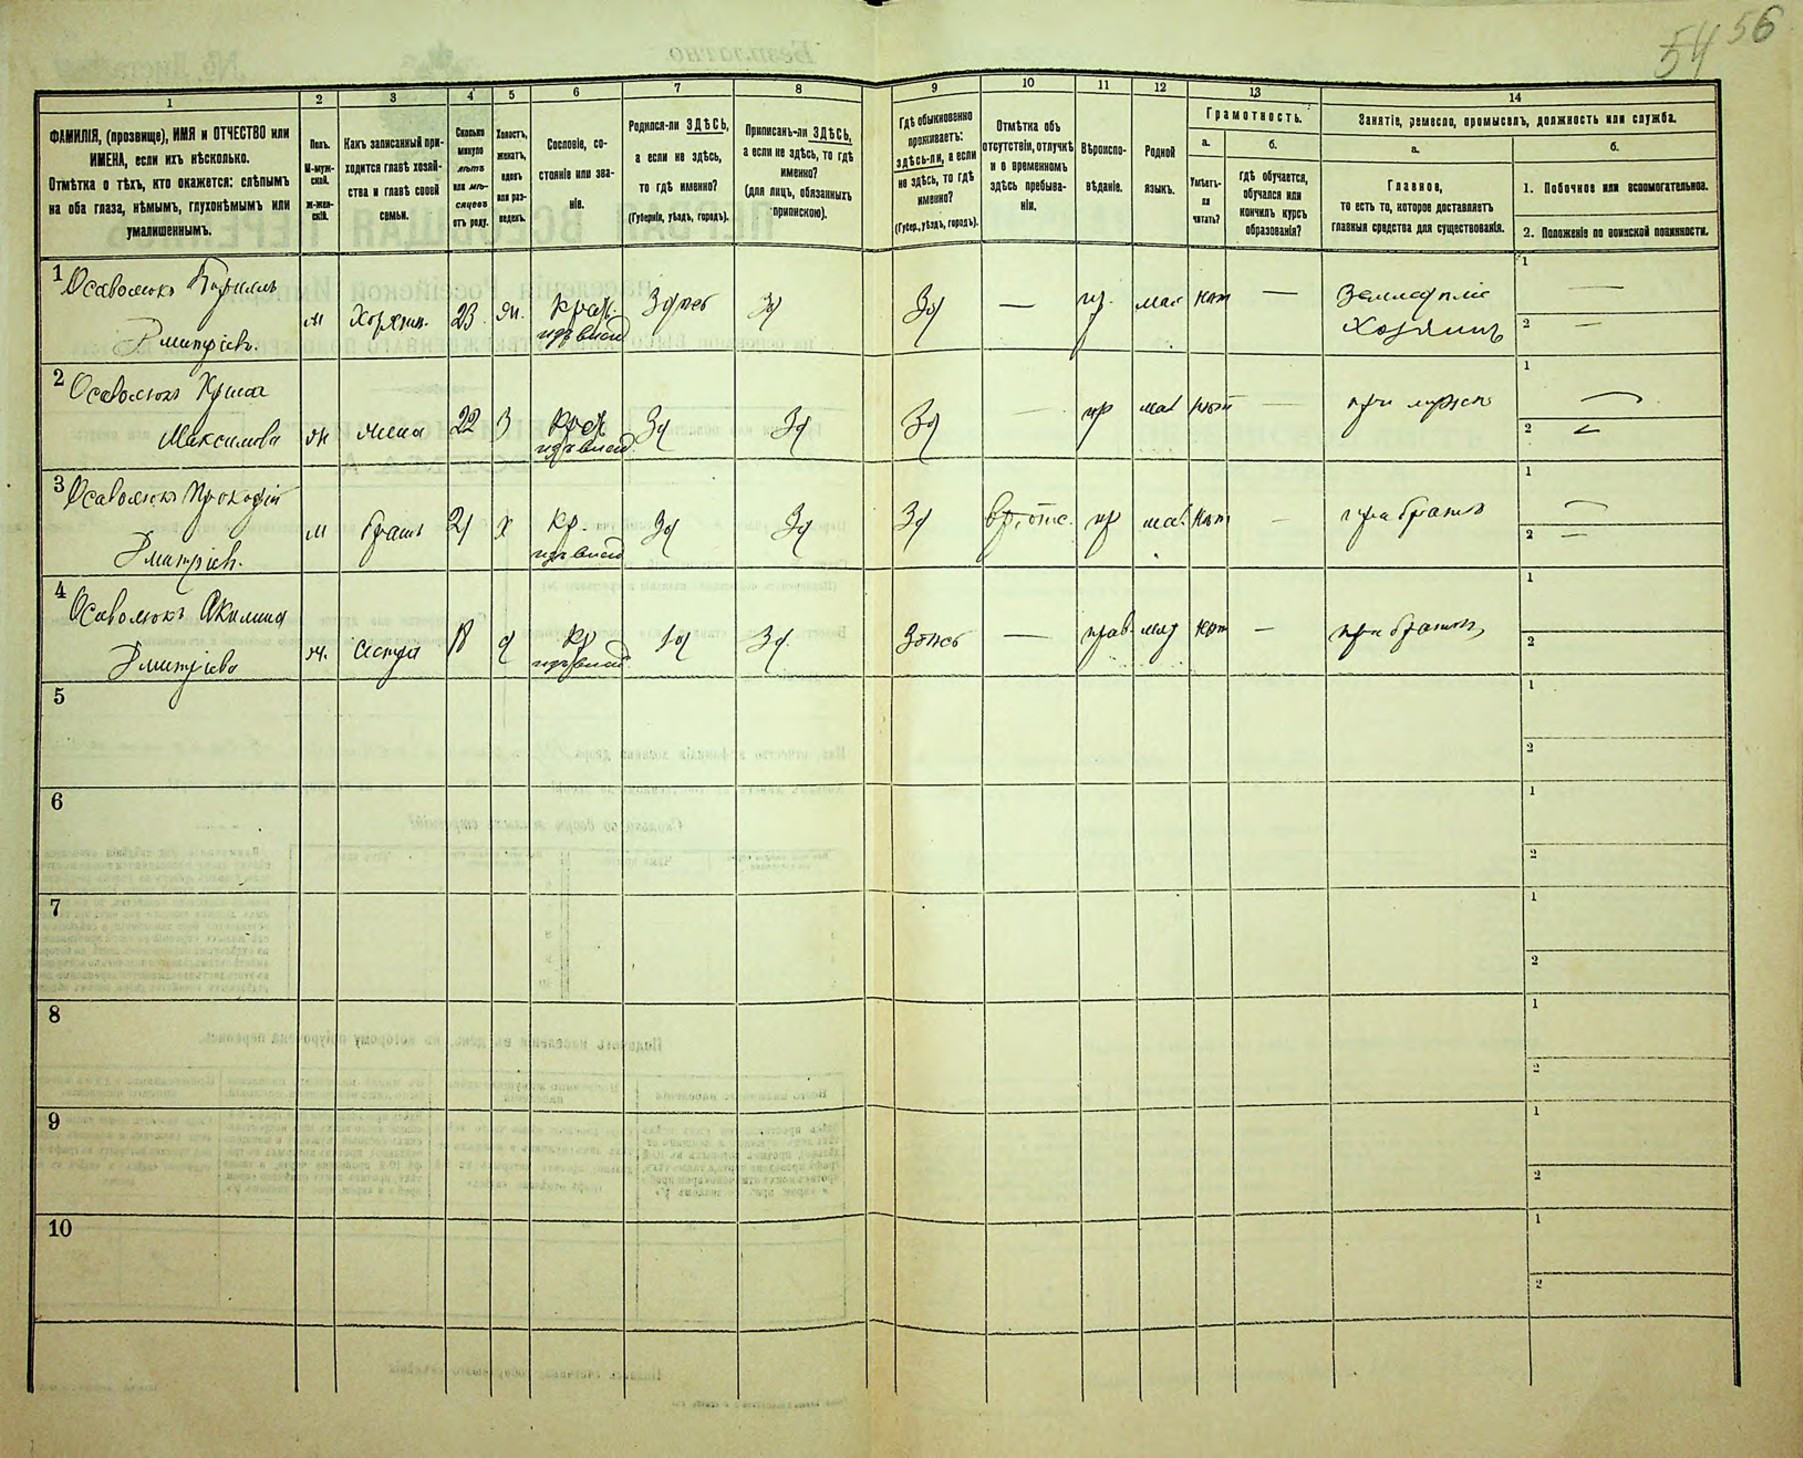 54 56
1
2
3
4
5
6
7
8
9
10
11
12
13
14
ФАМИЛІЯ, (прозвище), ИМЯ и ОТЧЕСТВО или
ИМЕНА, если ихъ нѣсколько.
Отмѣтка о тѣхъ, кто окажется: слѣпымъ
на оба глаза, нѣмымъ, глухонѣмымъ или
умалишеннымъ.
Полъ.
М-муж-
ской.
ж-жен-
скій.
Какъ записанный при-
ходится главѣ хозяй-
ства и главѣ своей
семьи.
Сколько
минуло
лѣтъ
или мѣ-
сяцевъ
отъ роду.
Холостъ,
женатъ,
вдовъ
или раз-
веденъ.
Сословіе, со-
стояніе или зва-
ніе.
Родился-ли ЗДѢСЬ,
а если не здѣсь,
то гдѣ именно?
(Губернія, уѣздъ, городъ).
Приписанъ-ли ЗДѢСЬ,
а если не здѣсь, то гдѣ
именно?
(для лицъ, обязанныхъ
припискою).
Гдѣ обыкновенно
проживаетъ:
здѣсь-ли, а если
не здѣсь, то гдѣ
именно?
(Губер., уѣздъ, городъ).
Отмѣтка объ
отсутствіи, отлучкѣ
и о временномъ
здѣсь пребыва-
ніи.
Вѣроиспо-
вѣданіе.
Родной
языкъ.
Грамотность.
а.
Умѣетъ-
ли
читать?
б.
гдѣ обучается,
обучался или
кончилъ курсъ
образованія?
Занятіе, ремесло, промыселъ, должность или служба.
а.
Главное,
то есть то, которое доставляетъ
главныя средства для существованія.
б.
1. Побочное или вспомогательное.
2. Положеніе по воинской повинности.
1 Осаволюкъ Кириллъ
Дмитріевъ.
м
Хозяинъ.
23
жн.
Крест.
изъ влад
Здѣсь
Зд
Зд
—
пр.
мал
нѣт
—
Земледѣліе
Хозяинъ
1 —
2 —
2 Осаволюкъ
Максимова
ж
жена
22
З
Крест
изъ влад
Зд
Зд
Зд
—
пр
мал
нѣт
—
при мужѣ
1 —
2 —
3 Осаволюкъ Прокофій
Дмитріевъ.
м
братъ
21
х
Кр.
изъ влад
Зд
Зд
Зд
вр. отс.
пр
мал.
нѣт
—
при братѣ
1 —
2 —
4 Осаволюкъ Акилина
Дмитріева
ж.
сестра
18
д
Кр
изъ влад
Зд
Зд.
Здѣсь
—
прав.
мал
нѣт
—
при братѣ
1
2
5
1
2
6
1
2
7
1
2
8
1
2
9
1
2
10
1
2